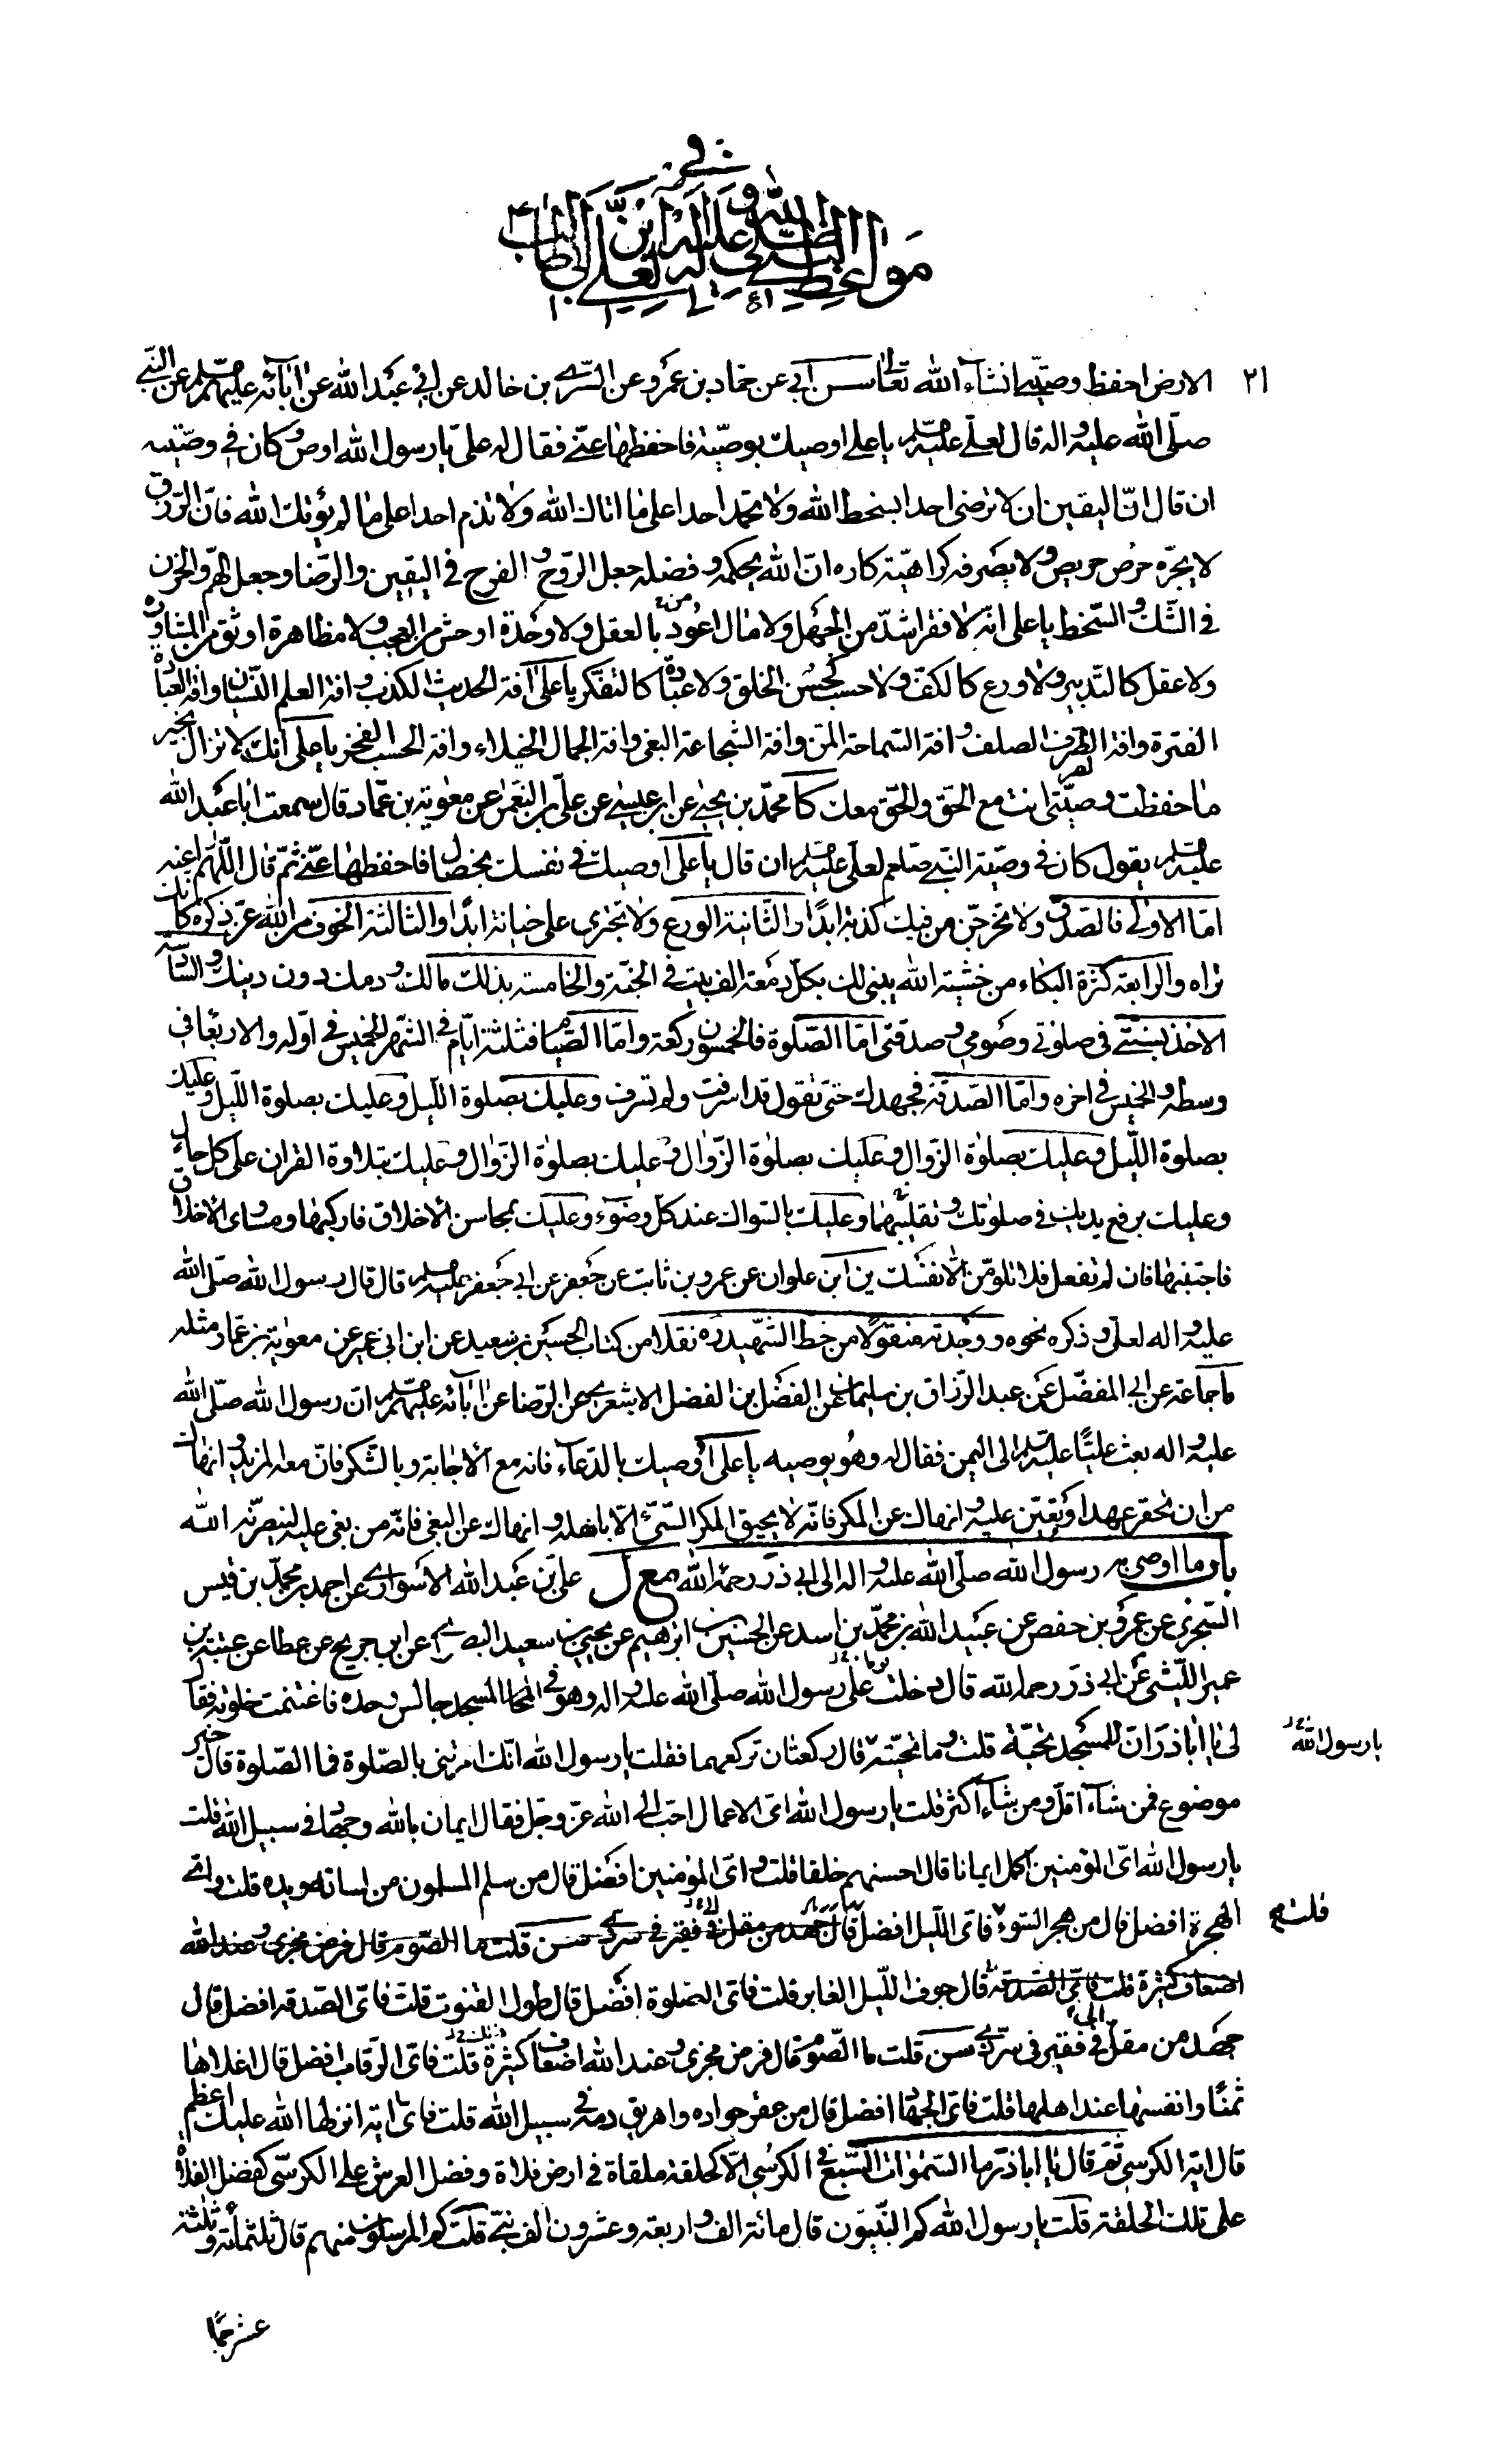 في
مواعظ النبي صلى الله عليه وآله لعلي ابن أبي طالب ع
٢١
الارض احفظ وصيتي انشاء الله تعالى سن ابي عن حماد بن عمرو عن السرى بن خالد عن ابي عبد الله عن ابآئه عليهم السلم عن النبي
صلى الله عليه واله قال لعلى عليه السلم يا علي اوصيك بوصية فاحفظها عني فقال له على يا رسول الله اوص وكان في وصيته
ان قال ان اليقين ان لا ترضى احدا بسخط الله ولا تحمد احدا على ما اتاك الله ولا تذم احدا على ما لم يؤتك الله فان الرزق
لا يجره حرص حريص ولا يصرفه كراهية كاره ان الله بحكمه وفضله جعل الروح و الفرح في اليقين والرضا وجعل الهم والحزن
في الشك و السخط يا على انه لا فقر اشد من الجهل ولا مال اعود من العقل ولا وحدة اوحش من العجب ولا مظاهرة اوثق من المشاورة
ولا عقل كالتدبير ولا ورع كالكف ولا حسب كحسن الخلق ولا عبادة كالتفكر يا على افة الحديث الكذب و افة العلم النسيان وافة العبادة
الفترة وافة الظرف الصلف و افة السماحة المن وافة الشجاعة البغى وافة الجمال الخيلاء وافة الحسب الفخر يا على انك لا تزال بخير
ما حفظت وصيتي انت مع الحق والحق معك كا محمد بن يحيى عن ابن عيسى عن علي بن النعمن عن معوية بن عمار قال سمعت ابا عبد الله
عليه السلم يقول كان في وصية النبي صلعم لعلى عليه السلم ان قال يا على اوصيك في نفسك بخصال فاحفظها عني ثم قال اللهم اعنه
اما الاولى فالصدق ولا تخرجن من فيك كذبة ابدا و الثانية الورع ولا تجترى على خيانة ابدا والثالثة الخوف من الله عز ذكره كانك
تراه والرابعة كثرة البكاء من خشية الله يبنى لك بكل دمعة الف بيت في الجنة والخامسة بذلك مالك و دمك دون دينك والسادسة
الاخذ بسنتي في صلوتي وصومي وصدقتي اما الصلوة فالخمسون ركعة واما الصيام فثلثة ايام في الشهر الخميس في اوله والاربعا في
وسطه و الخميس في اخره واما الصدقة فجهدك حتى تقول قد اسرفت ولم تسرف وعليك بصلوة الليل وعليك بصلوة الليل وعليك
بصلوة الليل وعليك بصلوة الزوال وعليك بصلوة الزوال وعليك بصلوة الزوال وعليك بتلاوة القران على كل حال
وعليك برفع يديك في صلوتك و تقليبهما وعليك بالسواك عند كل وضوء وعليك بمحاسن الاخلاق فاركبها ومساوى الاخلاق
فاجتنبها فان لم تفعل فلا تلومن الا نفسك ين ابن علوان عن عمرو بن ثابت عن جعفر عن ابي جعفر عليه السلم قال قال رسول الله صلى الله
عليه واله لعلى وذكره نحوه ووجدته منقولا من خط الشهيد ره نقلا من كتاب الحسين بن سعيد عن ابن ابي عمير عن معوية بن عمار مثله
ما جماعة عن ابي المفضل عن عبد الرزاق بن سليمان عن الفضل بن الفضل الاشعري عن الرضا عن ابآئه عليهم السلم ان رسول الله صلى الله
عليه و اله بعث عليا عليه السلم الى اليمن فقال له وهو يوصيه يا على اوصيك بالدعاء فانه مع الاجابة وبالشكر فان معه المزيد و انهاك
من ان تخفر عهدا وتعين عليه و انهاك عن المكر فانه لا يحيق المكر السيئ الا باهله و انهاك عن البغى فانه من بغى عليه لينصرنه الله
باب ما اوصى به رسول الله صلى الله عليه و اله الى ابي ذر رحمه الله مع ل على بن عبد الله الاسوارى عن احمد بن محمد بن قيس
السجزى عن عمرو بن حفص عن عبيد الله بن محمد بن اسد عن الحسين بن ابرهيم عن يحيى بن سعيد البصري عن ابن جريج عن عطا عن عتبة بن
عمير الليثى عن ابي ذر رحمه الله قال دخلت يوما على رسول الله صلى الله عليه و اله وهو في المسجد جالس وحده فاغتنمت خلوته فقال
لى يا اباذر ان للمسجد تحية قلت وما تحيته قال ركعتان تركعهما فقلت يا رسول الله انك امرتنى بالصلوة فما الصلوة قال خير
يا رسول الله
موضوع فمن شآء اقل ومن شاء اكثر قلت يا رسول الله اى الاعمال احب الى الله عز وجل فقال ايمان بالله وجهاد في سبيل الله قلت
يا رسول الله اى المؤمنين اكمل ايمانا قال احسنهم خلقا قلت و اى المؤمنين افضل قال من سلم المسلمون من لسانه ويده قلت واى
الهجرة افضل قال من هجر السوء فاى الليل افضل قال جهد من مقل في فقير في سر قلت ما الصوم قال فرض مجزى و عند الله
قلت
اضعاف كثيرة قلت فاى الصدقة قال جوف الليل الغابر قلت فاى الصلوة افضل قال طول القنوت قلت فاى الصدقة افضل قال
جهد من مقل الى فقير في سر قلت ما الصوم قال فرض مجزى و عند الله اضعاف كثيرة قلت فاى الرقاب افضل قال اغلاها
ثمنا وانفسها عند اهلها قلت فاى الجهاد افضل قال من عقر جواده واهريق دمه في سبيل الله قلت فاى اية انزلها الله عليك اعظم
قال اية الكرسي ثم قال يا اباذر ما السموات السبع في الكرسي الا كحلقة ملقاة في ارض فلاة وفضل العرش على الكرسى كفضل الفلاة
على تلك الحلقة قلت يا رسول الله كم النبيون قال مائة الف و اربعة وعشرون الف نبي قلت كم المرسلون منهم قال ثلثمائة وثلثة
عشر جما